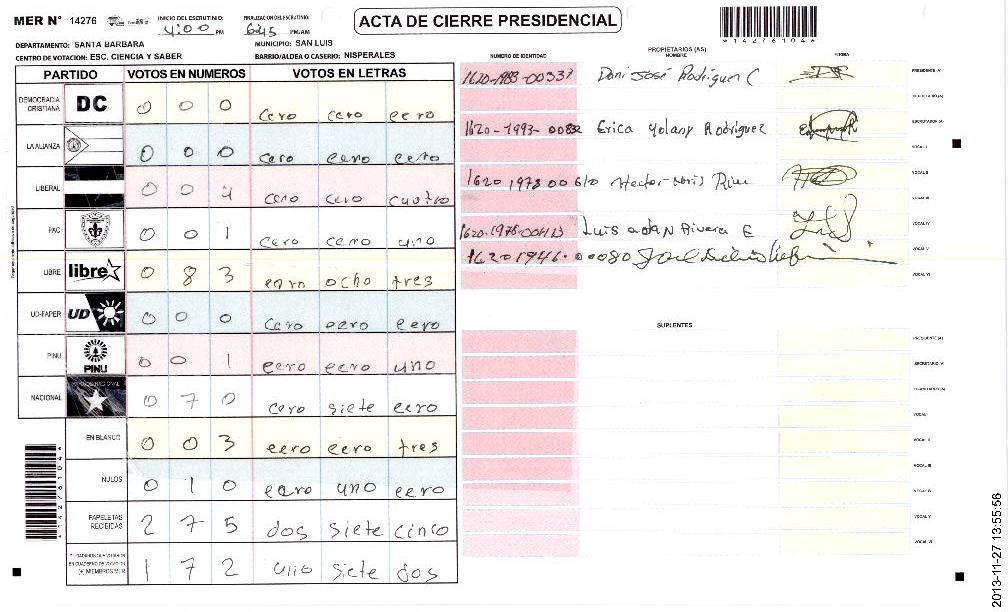 MER N° 14276
INICIO DEL ESCRUTINIO: 4:00 PM
FINALIZACION DEL ESCRUTINIO: 6:45 PM/AM
ACTA DE CIERRE PRESIDENCIAL
*14276104*
DEPARTAMENTO: SANTA BARBARA
MUNICIPIO: SAN LUIS
CENTRO DE VOTACION: ESC. CIENCIA Y SABER
BARRIO/ALDEA O CASERIO: NISPERALES
PARTIDO VOTOS EN NUMEROS VOTOS EN LETRAS
DEMOCRACIA CRISTIANA DC 0 0 0 cero cero cero
LA ALIANZA 0 0 0 cero cero cero
LIBERAL 0 0 4 cero cero cuatro
PAC 0 0 1 cero cero uno
LIBRE libre 0 8 3 cero ocho tres
UD-FAPER UD 0 0 0 cero cero cero
PINU PINU 0 0 1 cero cero uno
NACIONAL 0 7 0 cero siete cero
EN BLANCO 0 0 3 cero cero tres
NULOS 0 1 0 cero uno cero
PAPELETAS RECIBIDAS 2 7 5 dos siete cinco
CIUDADANOS QUE VOTARON EN CUADERNO DE VOTACION (+) MIEMBROS MER 1 7 2 uno siete dos
PROPIETARIOS (AS)
NUMERO DE IDENTIDAD NOMBRE FIRMA
1620-1983-00337 Doni José Rodriguez C PRESIDENTE (A)
SECRETARIO (A)
1620-1993-00832 Erica Yolany Rodriguez ESCRUTADOR (A)
VOCAL I
1620 1973 00610 Hector VOCAL II
VOCAL III
1620-1978-00413 Luis adan Rivera E VOCAL IV
1620 1946-00080 VOCAL V
VOCAL VI
SUPLENTES
PRESIDENTE (A)
SECRETARIO (A)
ESCRUTADOR (A)
VOCAL I
VOCAL II
VOCAL III
VOCAL IV
VOCAL V
VOCAL VI
*14276104*
2013-11-27 13:55:56